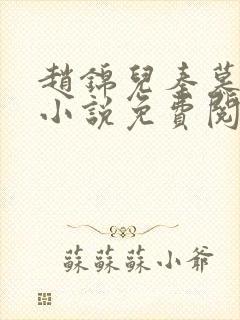 趙錦兒秦慕
小說免費閱
蘇蘇蘇小爺